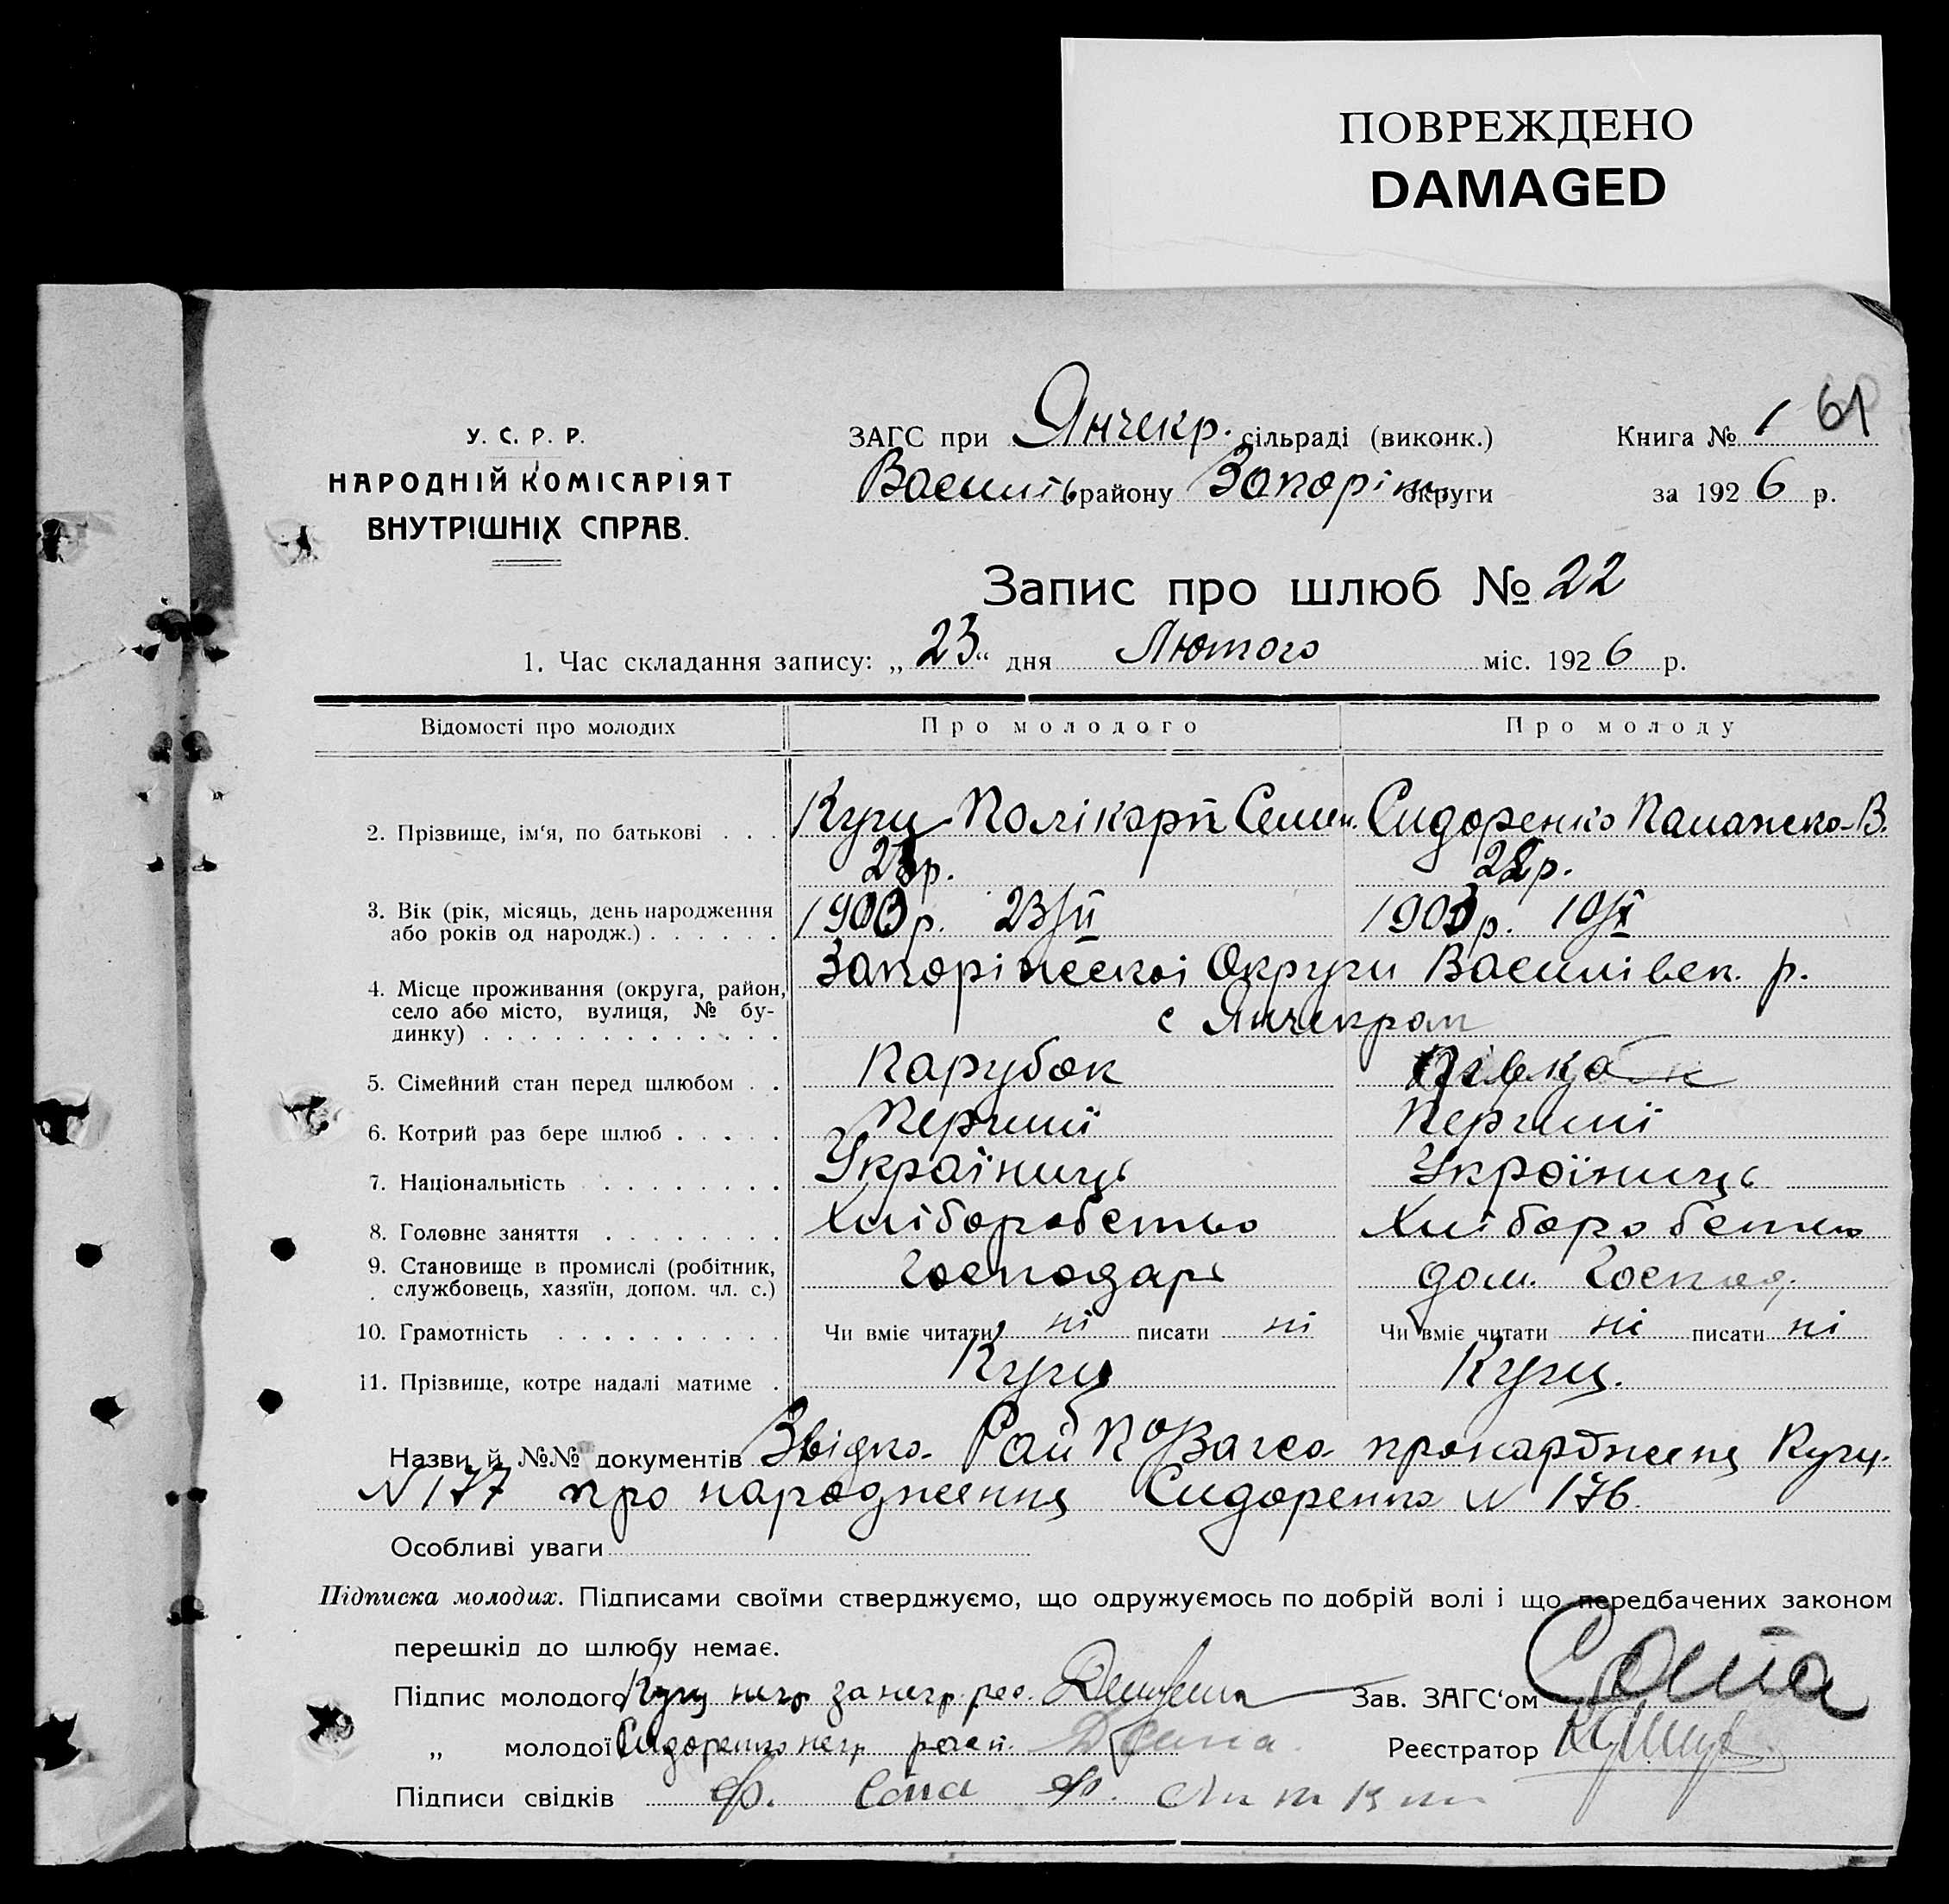 ПОВРЕЖДЕНО
DAMAGED
У. С. Р. Р.
НАРОДНІЙ КОМІСАРІЯТ
ВНУТРІШНІХ СПРАВ.
ЗАГС при Янчекр. сільраді (виконк.)
Василів району Запоріж. округи
Книга № 1 61
за 1926 р.
Запис про шлюб № 22
1. Час складання запису: „23“ дня Лютого міс. 1926 р.
Відомості про молодих Про молодого Про молоду
2. Прізвище, ім‘я, по батькові . . . Куц Полікарп Семен. Сидоренко Паланжка В.
23р. 22р.
3. Вік (рік, місяць, день народження або років од народж.) . . . . . . 1903р. 23/II 1903р. 10/X
4. Місце проживання (округа, район, село або місто, вулиця, № будинку) . . . . Запоріжської Округи Василівск. р.
с Янчекрак
5. Сімейний стан перед шлюбом . . Парубок Дівка
6. Котрий раз бере шлюб . . . . . Перший Перший
7. Національність . . . . . . . . Україниць Україниць
8. Головне заняття . . . . . . . . Хліборобство Хліборобство
9. Становище в промислі (робітник, службовець, хазяїн, допом. чл. с.) Господарь дом. Господ.
10. Грамотність . . . . . . . . . . Чи вміє читати ні писати ні Чи вміє читати ні писати ні
11. Прізвище, котре надалі матиме . Куц Куц.
Назви й №№ документів Звідка Рай Загса про народження Куц.
N 177 про народження Сидоренко N 176.
Особливі уваги
Підписка молодих. Підписами своїми стверджуємо, що одружуємось по добрій волі і що передбачених законом
перешкід до шлюбу немає.
Підпис молодого Куц негр за негр. рос. Зав. ЗАГС‘ом Сопа
„ молодої Сидоренко негр расп. Реєстратор
Підписи свідків Ф. Сопа Ф.